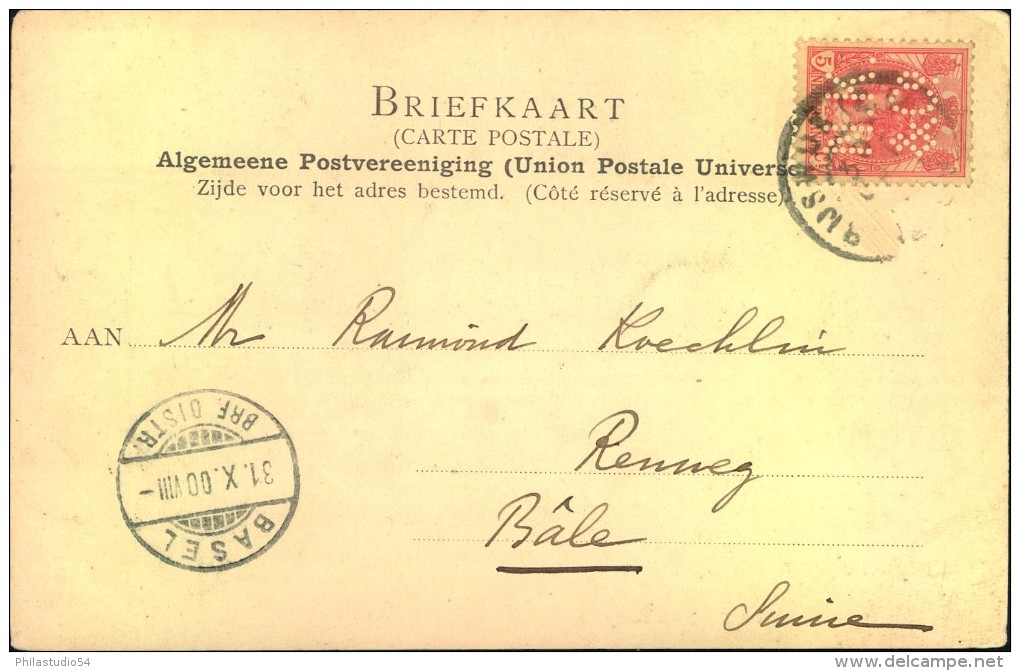 BRIEFKAART
(CARTE POSTALE)
Algemeene Postvereeniging (Union Postale Universe
Zijde voor het adres bestemd. (Côté réservé à l'adresse)
5
RIJSWIJK
AAN Mr Raimond Koechlin
Renweg
Bâle
Suisse
BASEL
31.X.00 VIII –
BRF. DISTR.
Philastudio54
delcampe.net